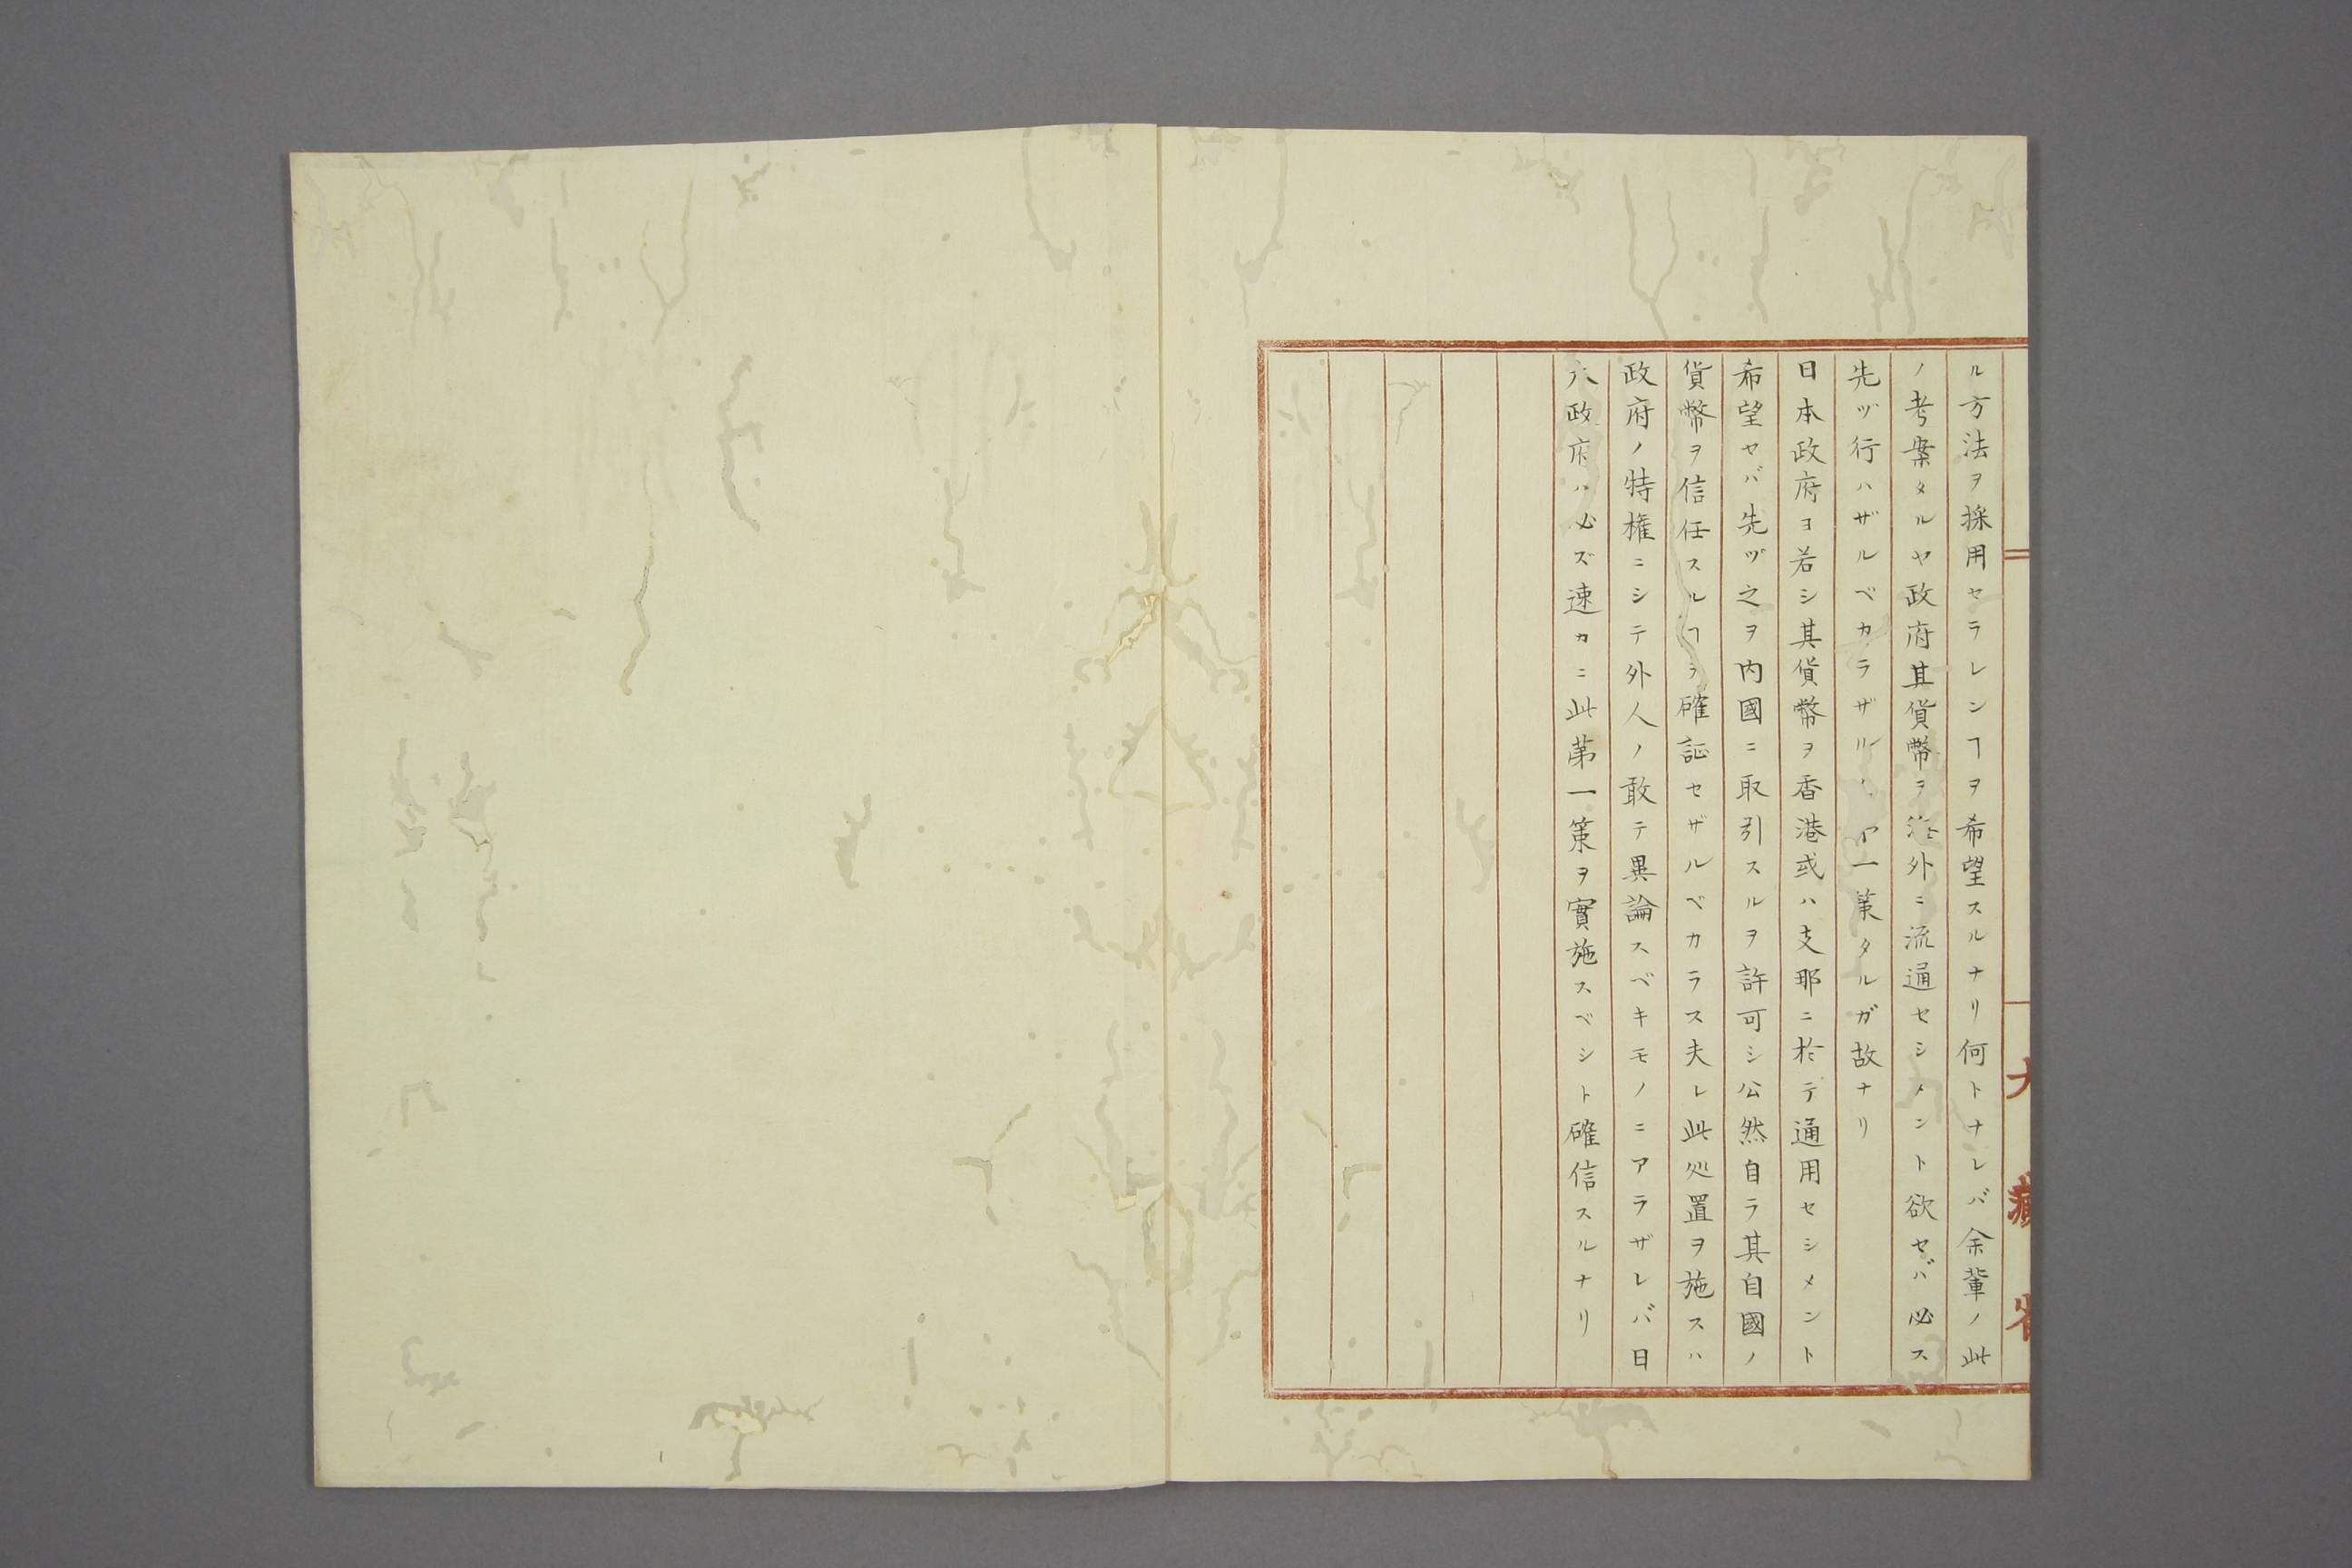 ル方法ヲ採用セラレンヿヲ希望スルナリ何トナレバ余輩ノ此
ノ考案タルヤ政府其貨幣ヲ海外ニ流通セシメント欲セバ必ス
先ヅ行ハザルベカラザル一策タルガ故ナリ
日本政府ヨ若シ其貨幣ヲ香港或ハ支那ニ於テ通用セシメント
希望セバ先ヅ之ヲ内國ニ取引スルヲ許可シ公然自ラ其自國ノ
貨幣ヲ信任スルヿヲ確証セザルベカラス夫レ此処置ヲ施スハ
政府ノ特権ニシテ外人ノ敢テ異論スベキモノニアラザレバ日
政府ハ必ズ速カニ此第一策ヲ實施スベシト確信スルナリ
大藏省